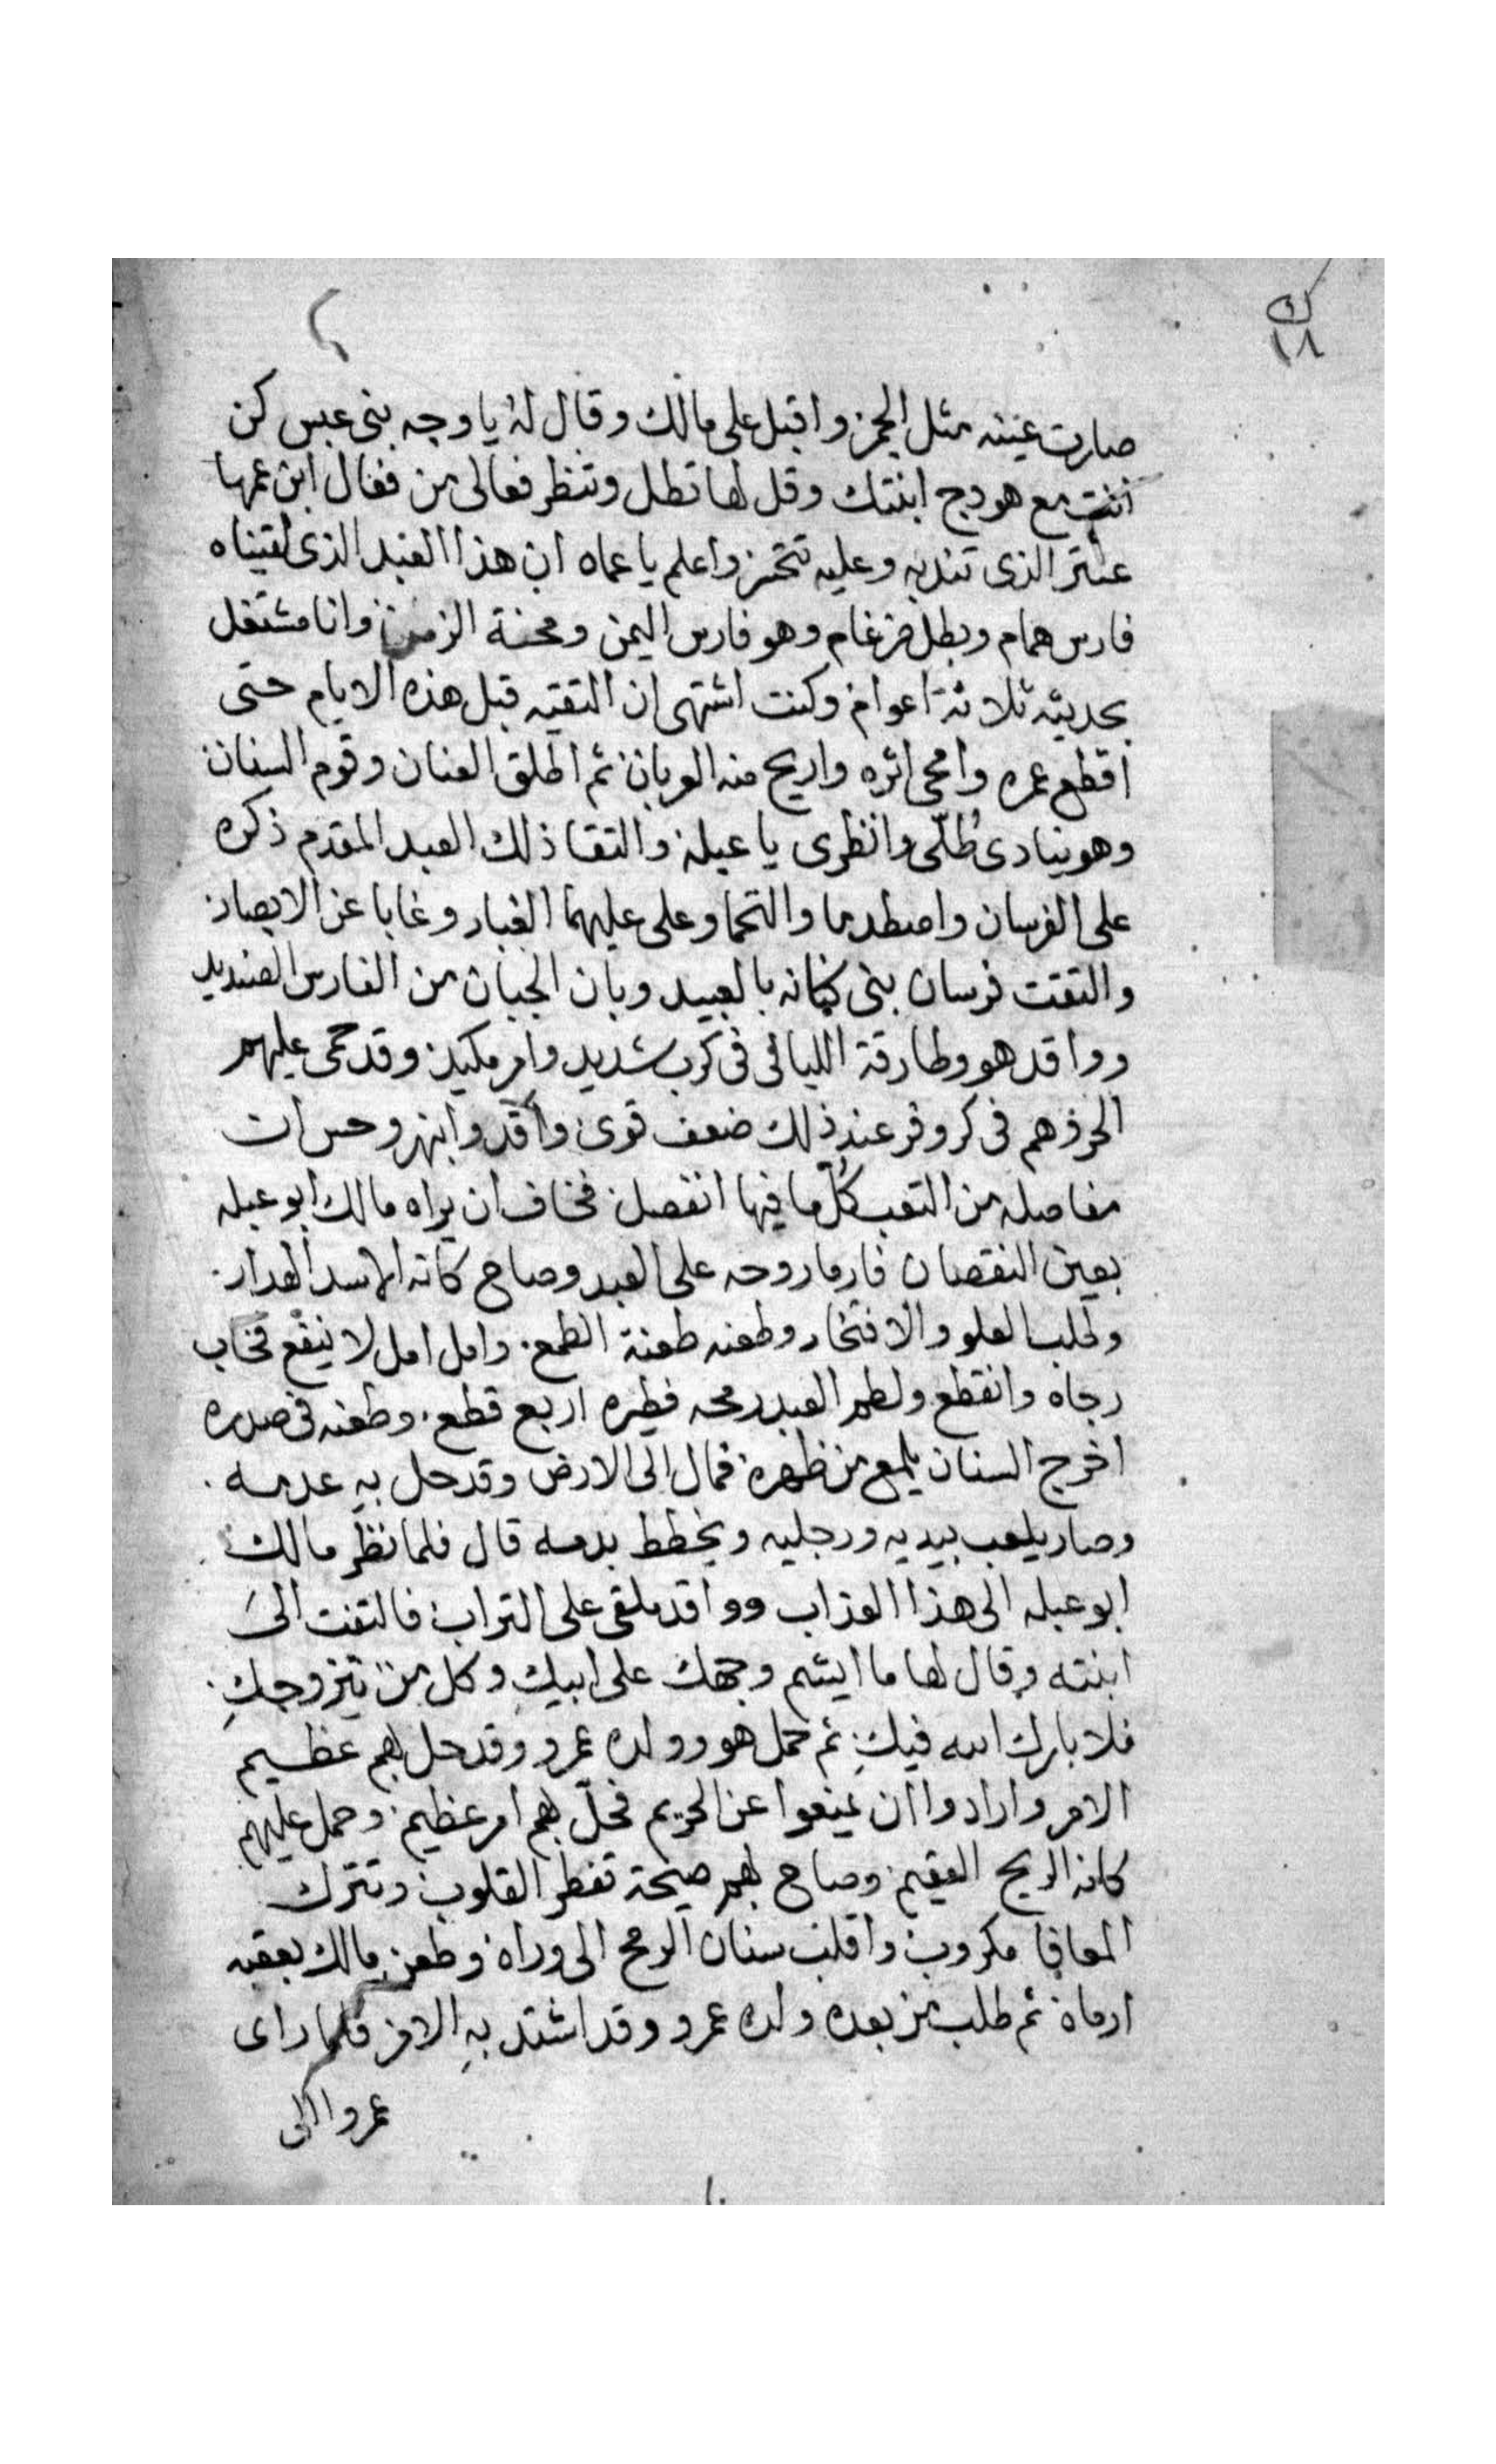 ١٨
صارت عينيه مثل الجمر واقبل على مالك وقال له يا وجه بنى عبس كن
انت مع هودج ابنتك وقل لها تطل وتنظر فعالى من فعال ابن عمها
عنتر الذى تندبه وعليه تتحسر واعلم يا عماه ان هذا العبد الذى لقيناه
فارس همام وبطل ضرغام وهو فارس اليمن ومحنة الزمن وانا مشتغل
بحديثه ثلاثة اعوام وكنت اشتهى ان التقيه قبل هذه الايام حتى
اقطع عمره وامحى اثره واريح منه العربان ثم اطلق العنان وقوم السنان
وهو ينادى طُلّى وانظرى يا عبلة والتقا ذلك العبد المقدم ذكره
على الفرسان واصطدما والتحما وعلى عليهما الغبار وغابا عن الابصار
والتقت فرسان بنى كنانه بالعبيد وبان الجبان من الفارس الصنديد
وواقد هو وطارقة الليالى فى كرب شديد وامر مكيد وقد حمى عليهم
الحر وهم فى كر وفر عند ذلك ضعف قوى واقد وانبهر وحس ان
مفاصله من التعب كُلّ ما فيها انفصل فخاف ان يراه مالك ابو عبله
بعين النقصان فارما روحه على العبد وصاح كانه الاسد الهدار
وطلب العلو والافتخار وطعنه طعنة الطمع وامل امل لا ينفع فخاب
رجاه وانقطع ولطم العبد رمحه فطيره اربع قطع وطعنه فى صدره
اخرج السنان يلمع من ظهره فمال الى الارض وقد حل بهِ عدمه
وصار يلعب بيديه ورجليه ويخطط بدمه قال فلما نظر مالك
ابو عبله الى هذا العذاب وواقد ملقى على التراب فالتفت الىَ
ابنته وقال لها ما ايشم وجهك على ابيكِ وكل من يتزوجكِ
فلا بارك الله فيكِ ثم حمل هو وولده عمرو وقد حل بهم عظيم
الامر وارادوا ان يمنعوا عن الحريم فحلّ بهم امر عظيم وحمل عليهم
كانه الريح العقيم وصاح بهم صيحة تفطر القلوب وتترك
المعافا مكروب واقلب سنان الرمح الى وراه وطعن مالك بعقبه
ارماه ثم طلب من بعده ولده عمرو وقد اشتد بهِ الامر فلما راى
عمرو الى